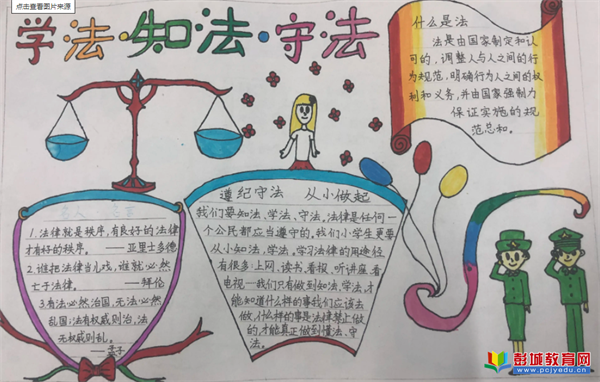 点击查看图片来源
学·法·知法·守法
什么是法
法是由国家制定和认
可的，调整人与人之间的行
为规范，明确行为人之间的权
利和义务，并由国家强制力
保证实施的规
范总和。
名人
1.法律就是秩序，有良好的法律
才有好的秩序。——亚里士多德
2.谁把法律当儿戏，谁就必然
亡于法律。——拜伦
3.有法必然治国，无法必然
乱国，法有权威则治，法
无权威则乱。
——孟子
遵纪守法 从小做起
我们要知法、学法、守法，法律是任何一
个公民都应当遵守的。我们小学生更要
从小知法，学法。学习法律的用途径
有很多：上网、读书、看报、听讲座、看
电视——我们只有做到知法，学法，才
能知道什么样的事我们应该去
做，什么样的事是法律禁止做
的，才能真正做到懂法、守
法。
彭城教育网
www.pcjyedu.cn